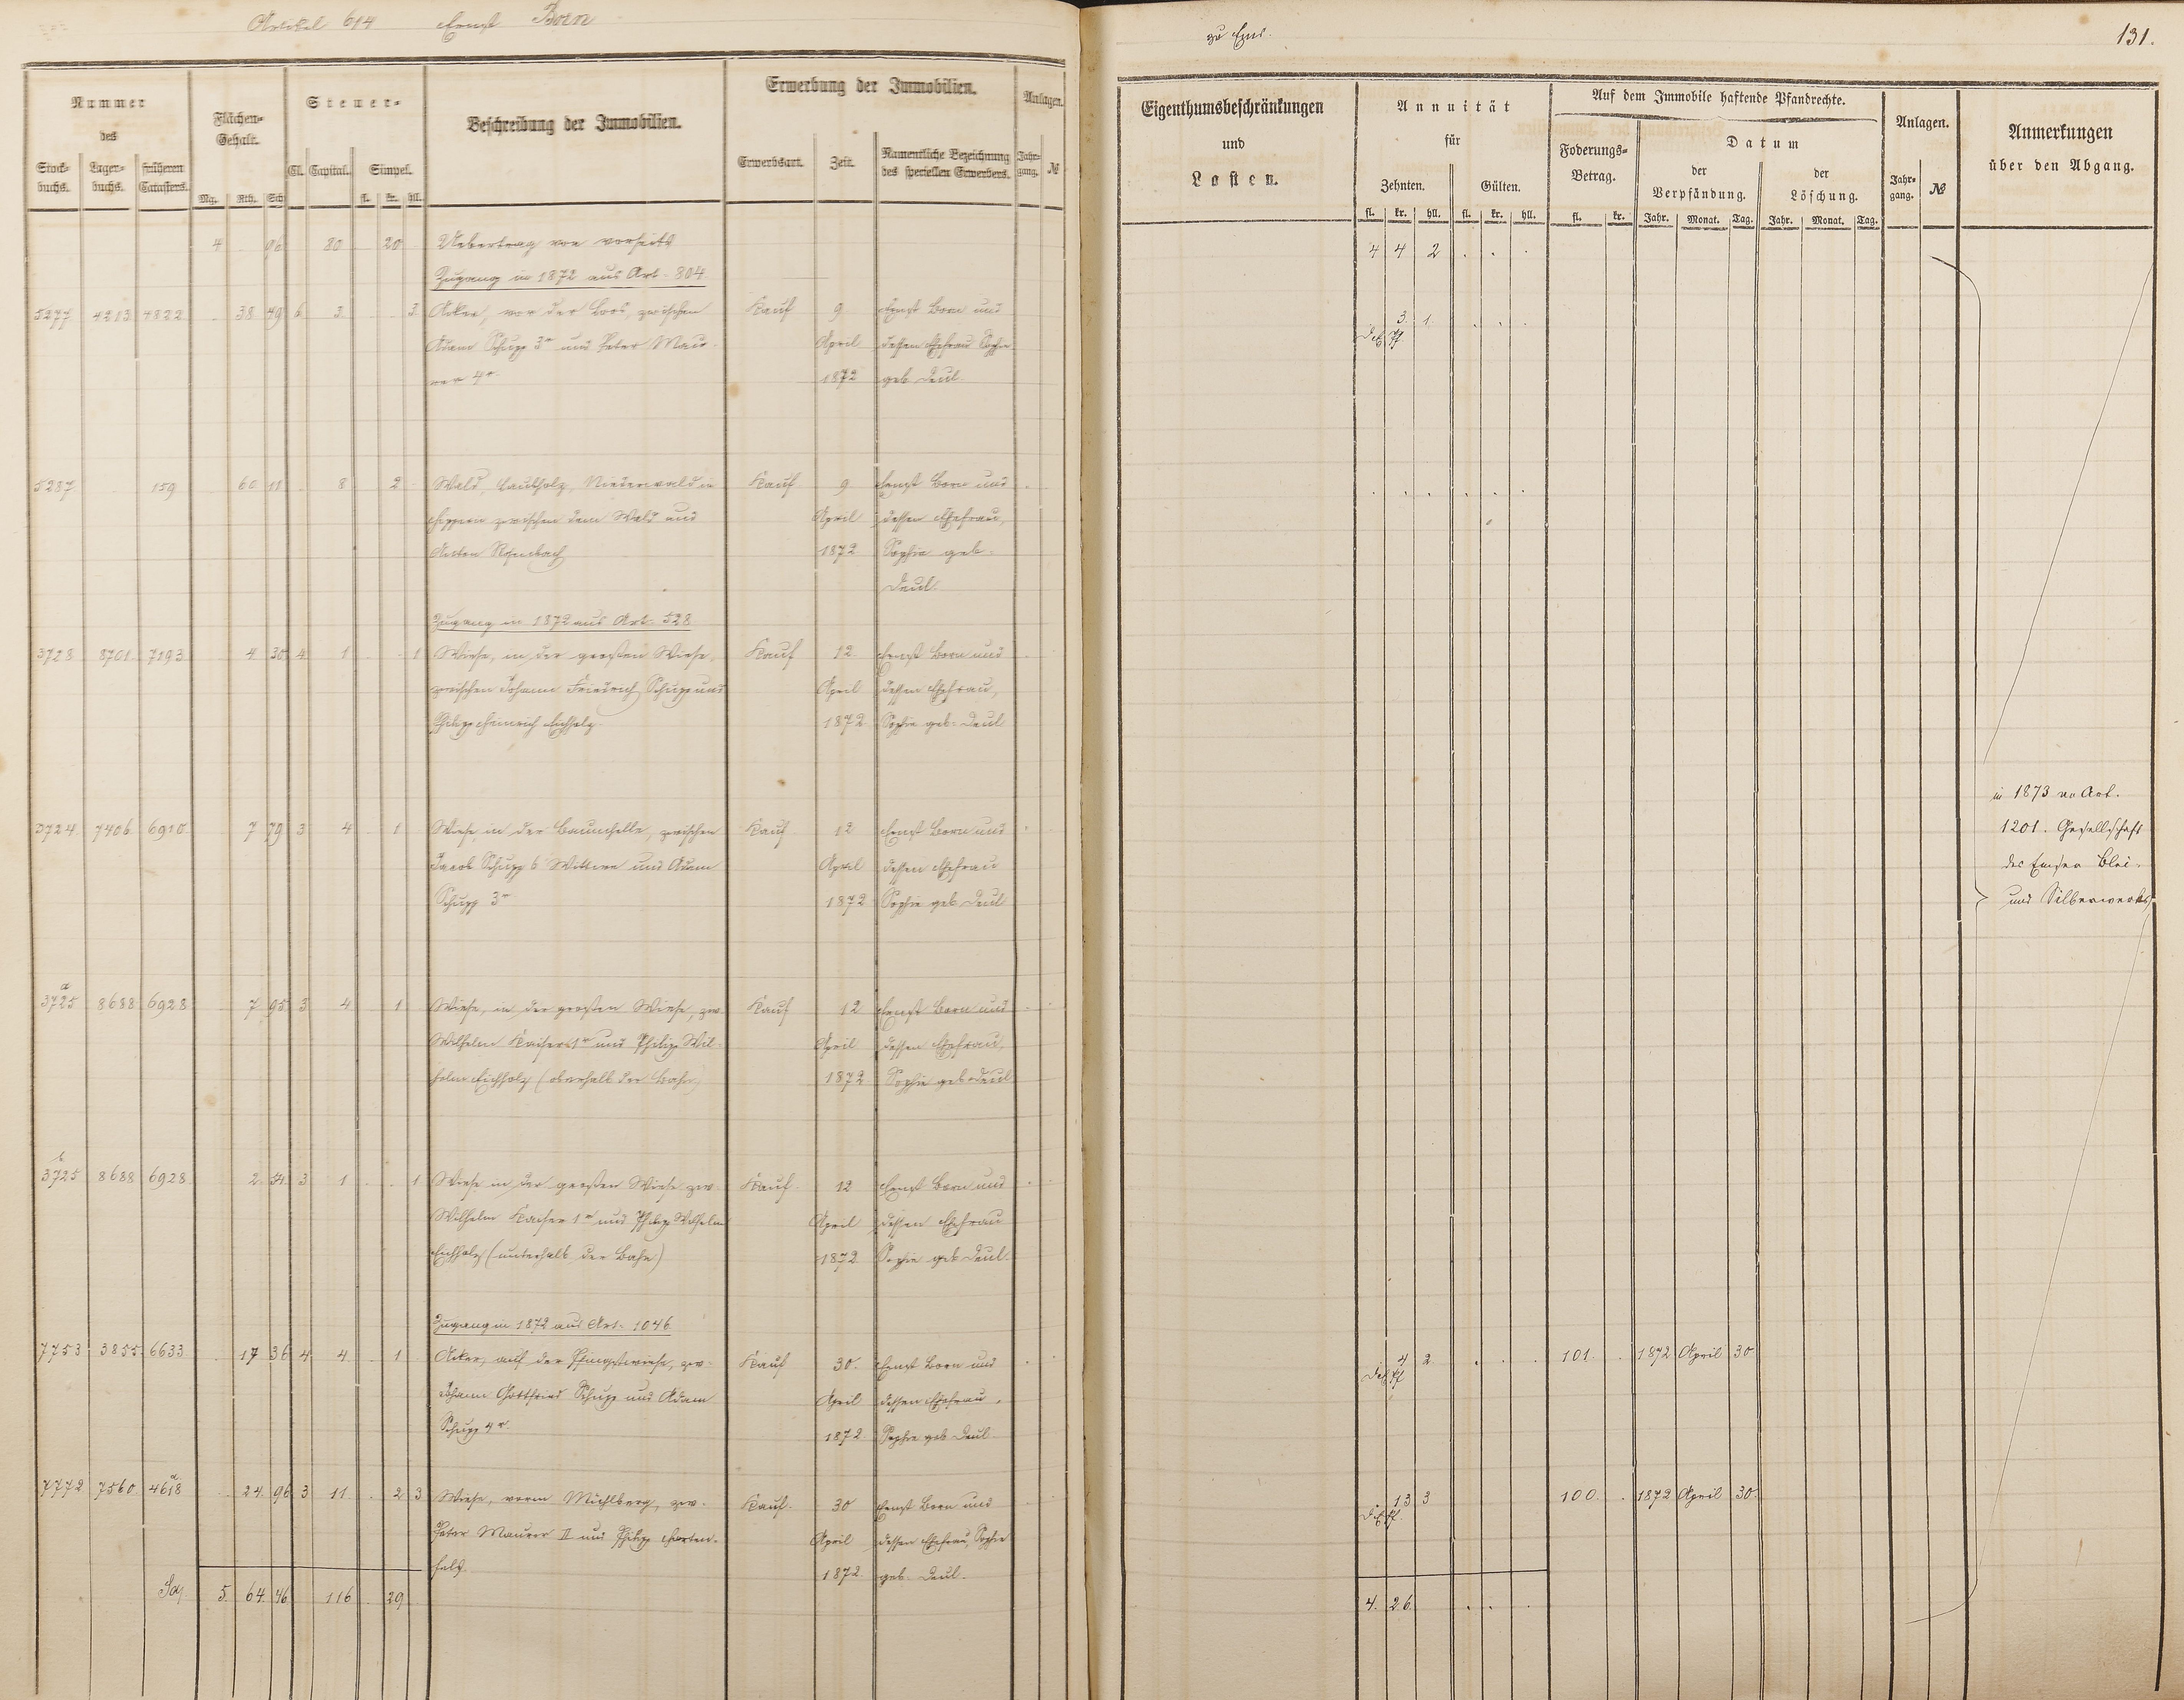 Artikel 614 Ernst Born
Nummer des
Stockbuchs. Lagerbuchs. früheren Catasters.
Flächen-Gehalt.
Mg. Rth. Sch.
Steuer-
Cl. Capital. Simpel.
fl. kr. hll.
Beschreibung der Immobilien.
Erwerbung der Immobilien.
Erwerbsart. Zeit. Namentliche Bezeichnung des speciellen Erwerbers.
Anlagen.
Jahrgang. №
4 96 80 20 Uebertrag von vorseits
Zugang in 1872 aus Art. 804
5277 4213 4822 38 49 6 3 3 Acker, vor der Loos, zwischen Kauf 9 Ernst Born und
Adam Schupp 3r und Peter Mau- April dessen Ehefrau Sophie
rer 4r. 1872 geb. Deul.
5287 159 60 11 8 2 Wald, Laubholz, Niederwald in Kauf 9 Ernst Born und
zwischen dem Wald und April dessen Ehefrau,
Anton 1872 Sophie geb.
Deul.
Zugang in 1872 aus Art. 528
3723 8701 7193 4 30 4 1 1 Wiese, in der großen Wiese, Kauf 12. Ernst Born und
zwischen Johann Friedrich Schupp und April dessen Ehefrau,
Philipp Heinrich Eichholz. 1872 Sophie geb. Deul
3724 7406 6910 7 79 3 4 1 Wiese in der Baumhelle, zwischen Kauf 12 Ernst Born und
Jacob Schupp 6 Wittwe und Adam April dessen Ehefrau
Schupp 3r 1872 Sophie geb. Deul
a
3725 8688 6928 7 95 3 4 1 Wiese, in der großen Wiese, zw. Kauf 12 Ernst Born und
Wilhelm Kaiser 1r und Philipp Wil- April dessen Ehefrau,
helm Eichholz (oberhalb der Bahn) 1872 Sophie geb. Deul
b
3725 8688 6928 2 54 3 1 1 Wiese in der großen Wiese zw. Kauf 12 Ernst Born und
Wilhelm Kaiser 1r und Philipp Wilhelm April dessen Ehefrau
Eichholz (unterhalb der Bahn) 1872 Sophie geb. Deul.
Zugang in 1872 aus Art. 1046
7753 3855 6633 17 36 4 4 1 Acker, auf der Pfingstwiese, zw. Kauf 30. Ernst Born und
Johann Gottfried Schupp und Adam April dessen Ehefrau,
Schupp 4r. 1872 Sophie geb. Deul
7772 7560 4618a 24 96 3 11 2 3 Wiese, vorm Mühlberg, zw. Kauf. 30 Ernst Born und
Peter Maurer II und Philipp Harten- April dessen Ehefrau, Sophie
fels. 1872 geb. Deul.
Sa. 5. 64. 46. 116 29
zu Ems. 131.
Eigenthumsbeschränkungen und Lasten.
Annuität für
Zehnten. Gülten.
fl. kr. hll. fl. kr. hll.
Auf dem Immobile haftende Pfandrechte.
Foderungs-Betrag.
fl. kr.
Datum
der Verpfändung. der Löschung.
Jahr. Monat. Tag. Jahr. Monat. Tag.
Anlagen.
Jahrgang. №
Anmerkungen über den Abgang.
4 4 2
3. 1.
in 1873 an Art.
1201. Gesellschaft
des Emser Blei-
und Silberwerks
4 2 101. 1872 April 30.
13 3 100. 1872 April 30.
4. 26.